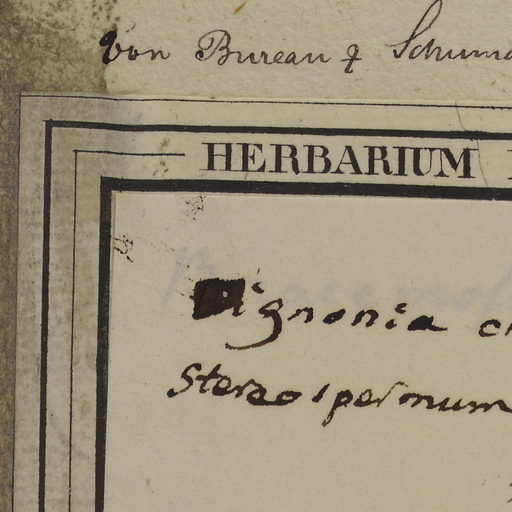 von Bureau &
HERBARIUM
Bignonia
Stereospermum